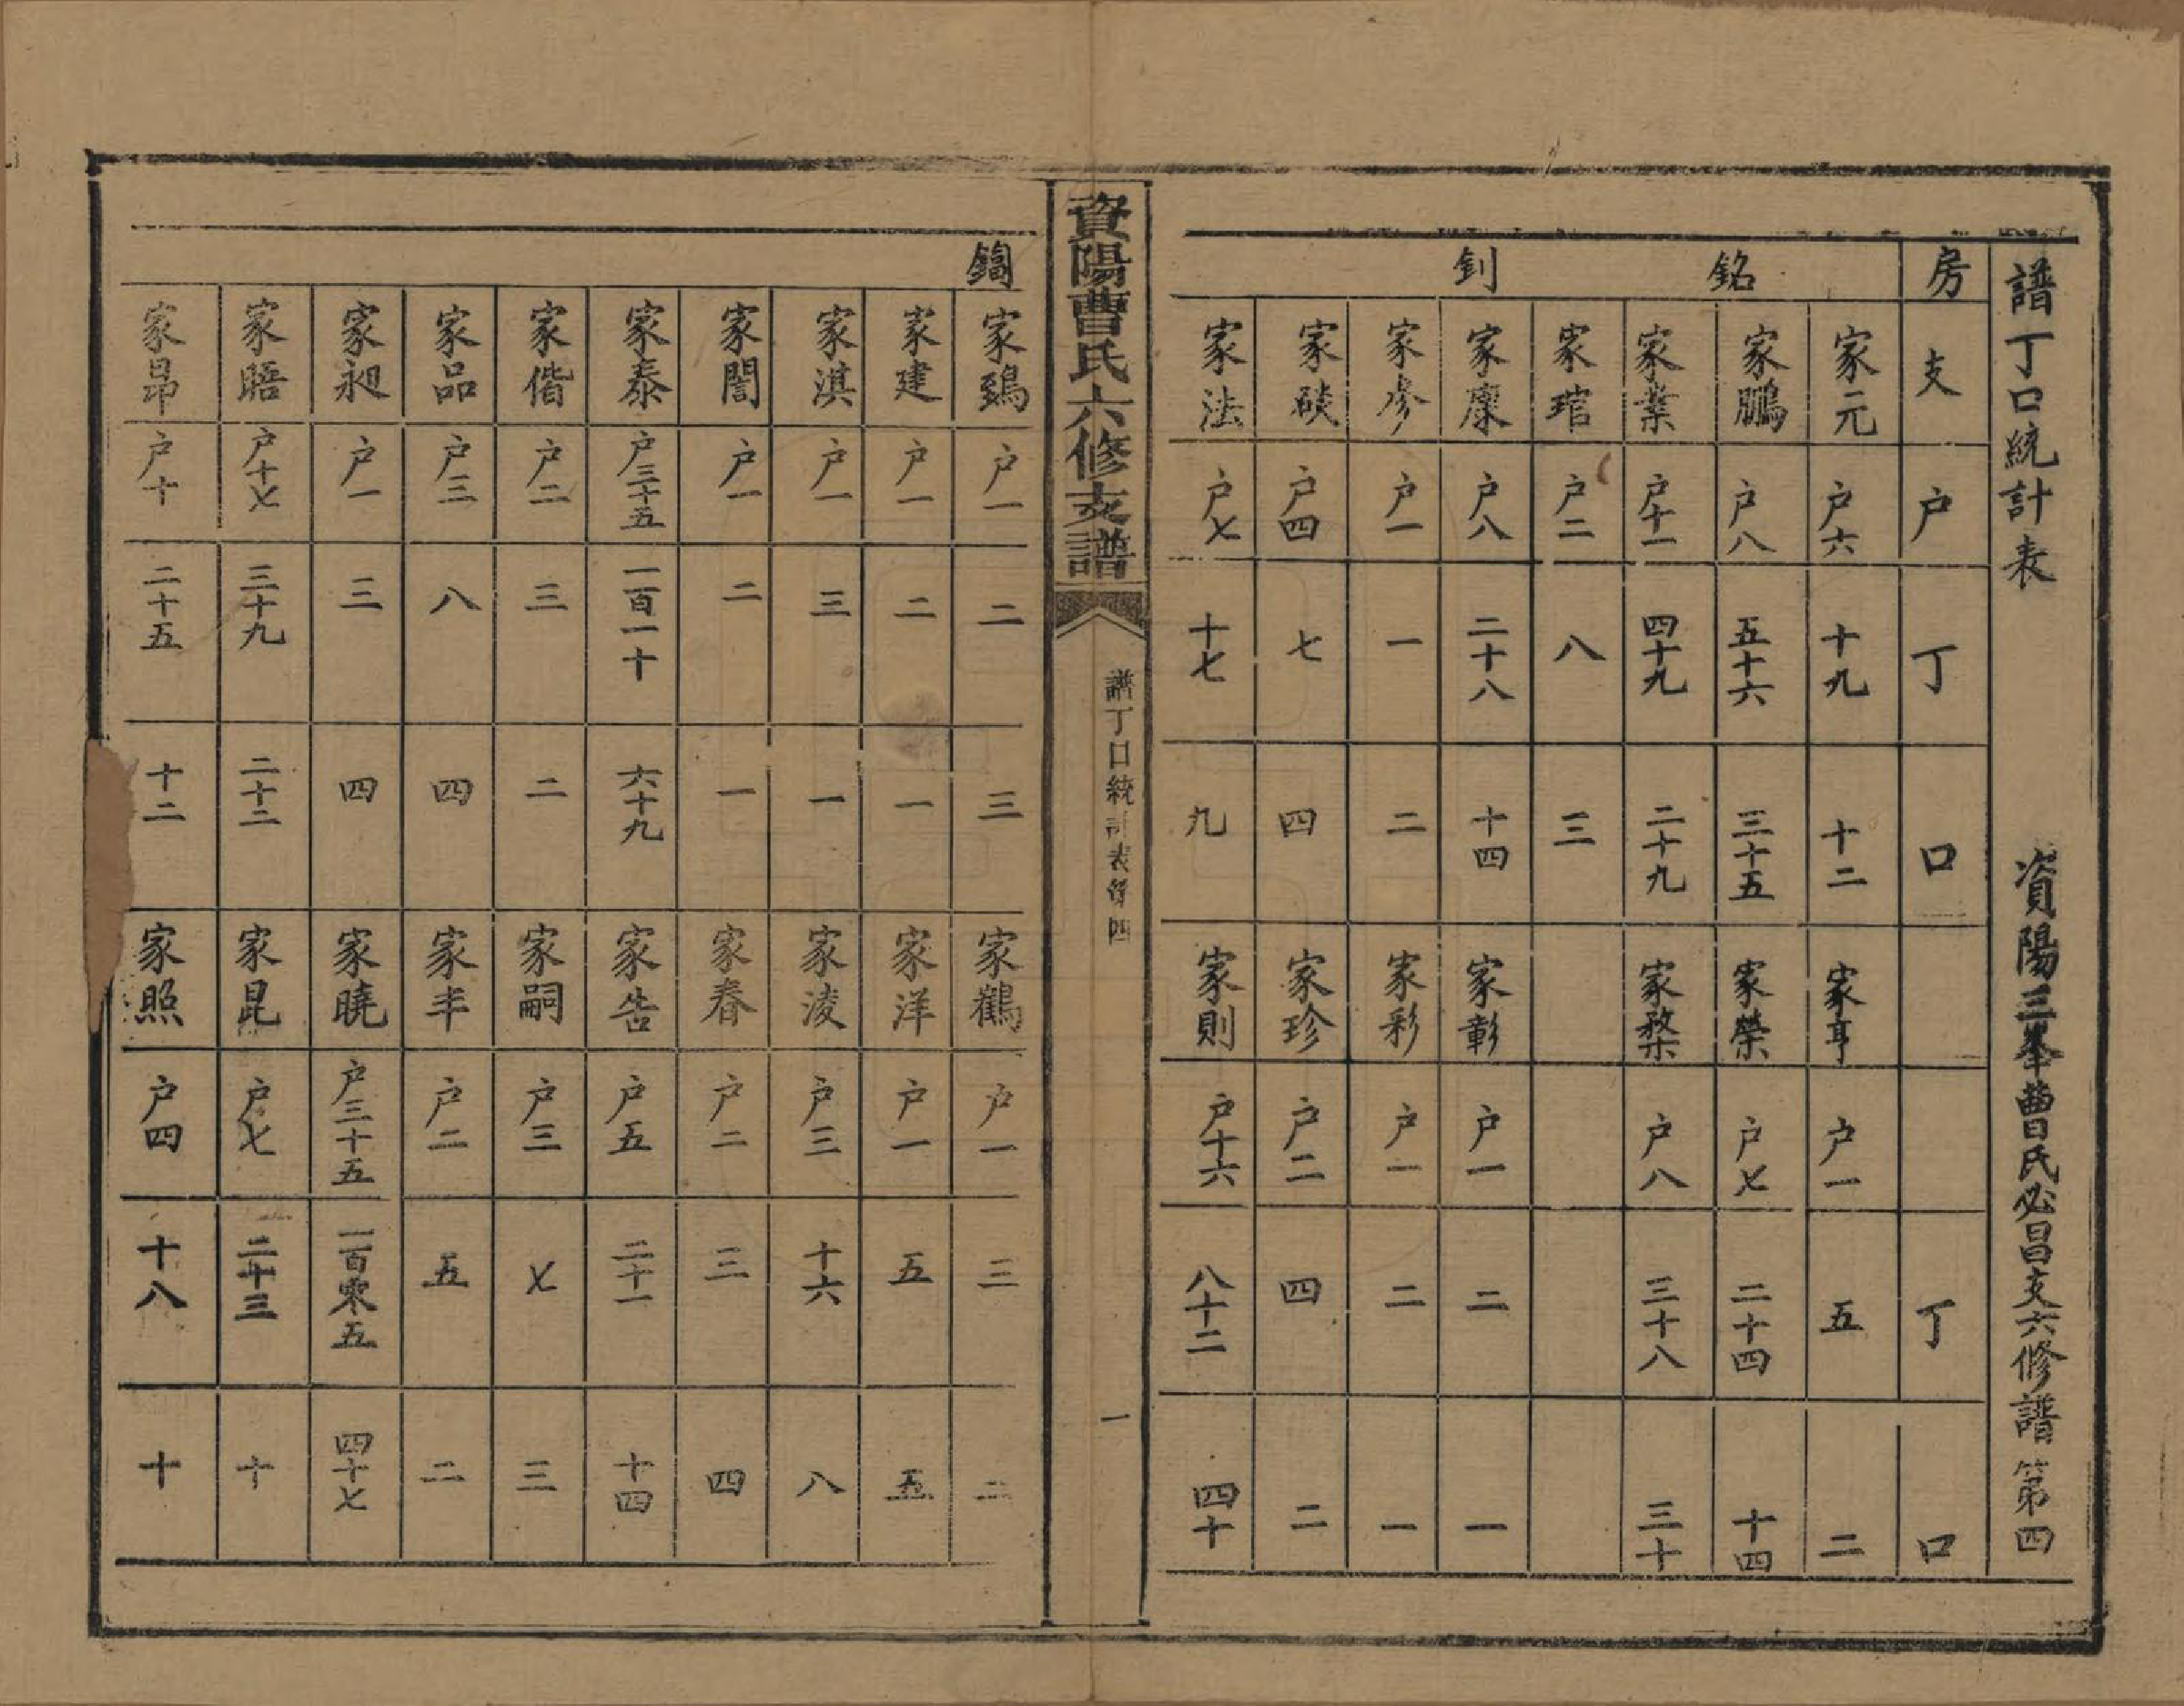 譜丁口統計表　資陽三峯曹氏必昌支六修譜第四
房　支　户　丁　口　丁　口
銘　家元　户六　十九　十二　家亨　户一　五　二
家鵬　户八　五十六　三十五　家榮　户七　二十四　十四
家業　户十一　四十九　二十九　家棨　户八　三十八　三十
家琯　户二　八　三
釗　家廩　户八　二十八　十四　家彰　户一　二　一
家廖　户一　一　二　家彩　户一　二　一
家磢　户四　七　四　家珍　户二　四　二
家法　户七　十七　九　家則　户十六　八十二　四十
資陽曹氏六修支譜　譜丁口統計表第四　一
鎬　家鵄　户一　二　三　家鶴　户一　三　二
家建　户一　二　一　家洋　户一　五　五
家淇　户一　三　一　家淩　户三　十六　八
家誾　户一　二　一　家春　户二　三　四
家泰　户三十五　一百一十　六十九　家告　户五　二十一　十四
家偕　户二　三　二　家嗣　户三　七　三
家品　户三　八　四　家丰　户二　五　二
家昶　户一　三　四　家曉　户三十五　一百零五　四十七
家晤　户十七　三十九　二十二　家昆　户七　二十三　十
家昂　户十　二十五　十二　家照　户四　十八　十